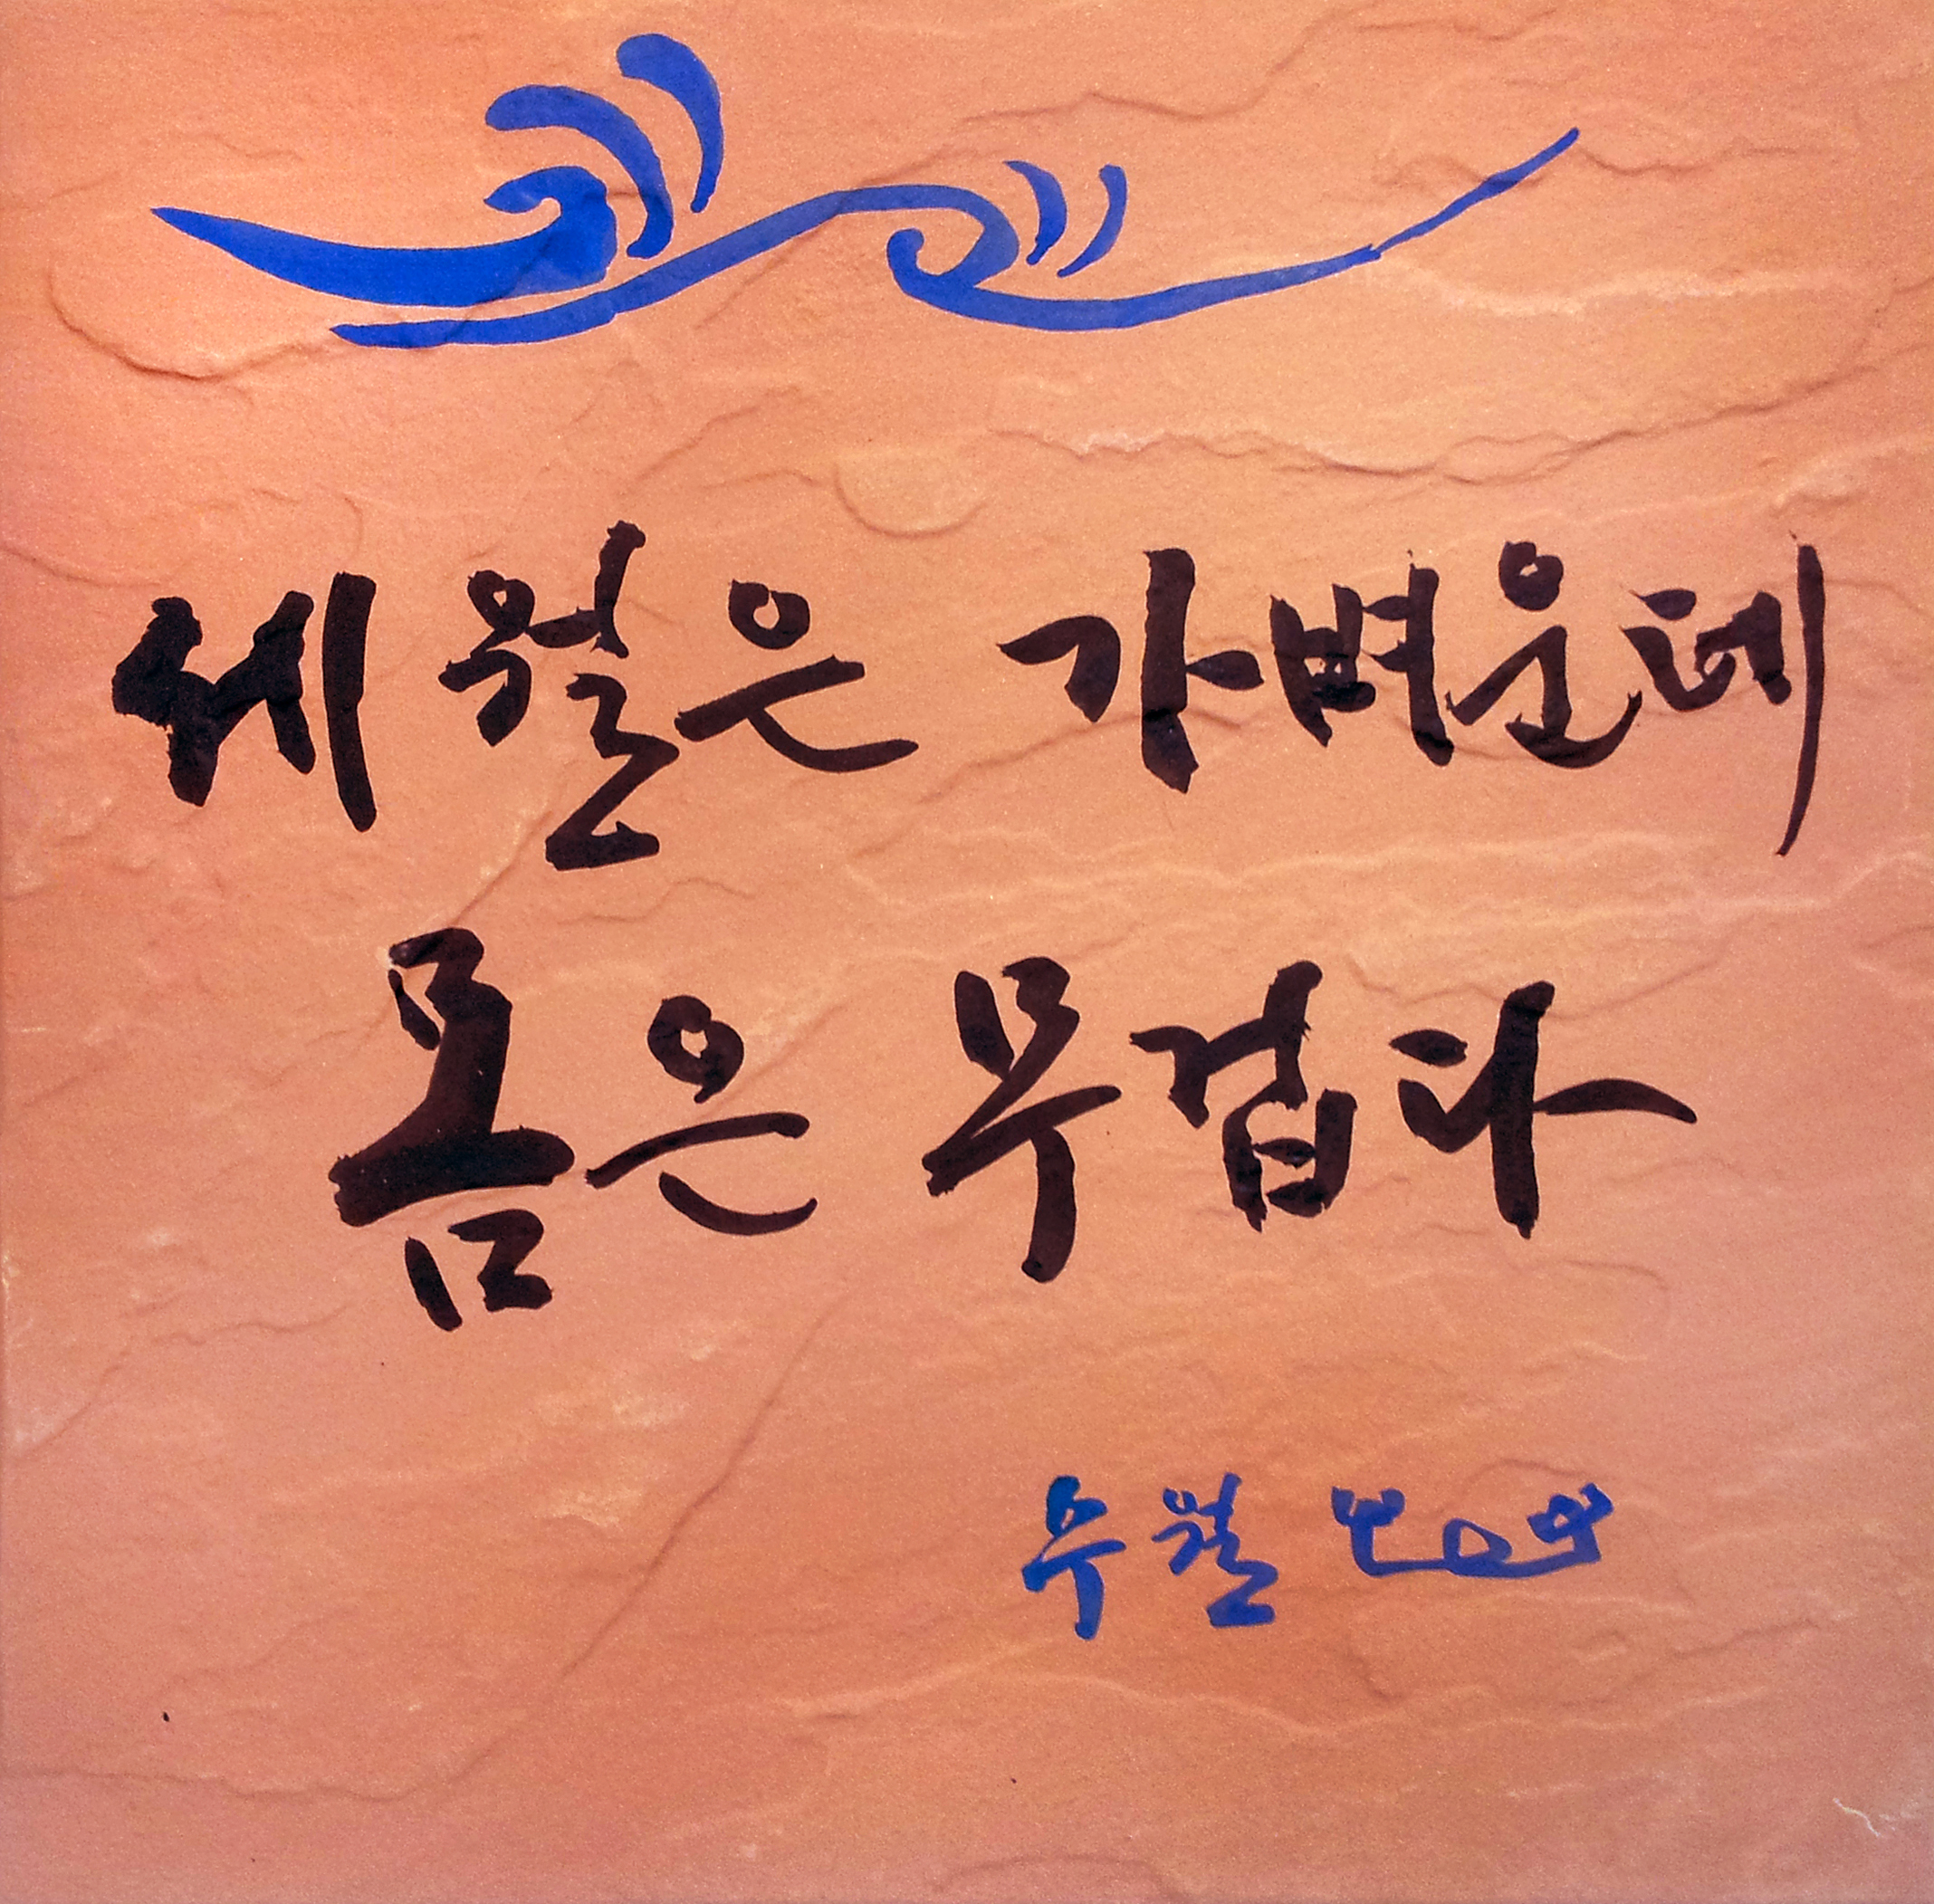 세월은 가벼운데
몸은 무겁다
무월